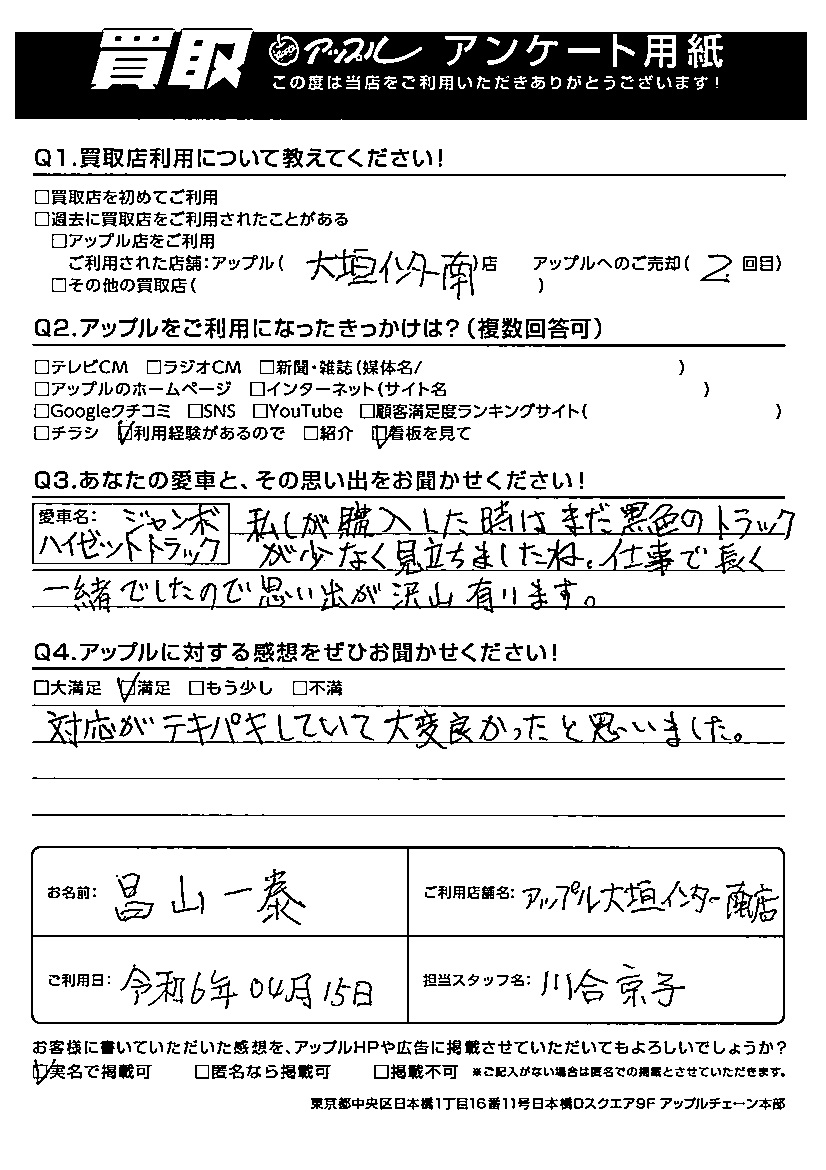 買取 アップル アンケート用紙
この度は当店をご利用いただきありがとうございます!
Q1.買取店利用について教えてください!
□買取店を初めてご利用
□過去に買取店をご利用されたことがある
□アップル店をご利用
ご利用された店舗:アップル( 大垣インター南 )店 アップルへのご売却( 2 回目)
□その他の買取店( )
Q2.アップルをご利用になったきっかけは?(複数回答可)
□テレビCM □ラジオCM □新聞・雑誌(媒体名/ )
□アップルのホームページ □インターネット(サイト名 )
□Googleクチコミ □SNS □YouTube □顧客満足度ランキングサイト( )
□チラシ ☑利用経験があるので □紹介 ☑看板を見て
Q3.あなたの愛車と、その思い出をお聞かせください!
愛車名: ジャンボ 私しが購入した時はまだ黒色のトラック
ハイゼットトラック が少なく見立ちましたね。仕事で長く
一緒でしたので思い出が沢山有ります。
Q4.アップルに対する感想をぜひお聞かせください!
□大満足 ☑満足 □もう少し □不満
対応がテキパキしていて大変良かったと思いました。
お名前: 畠山一泰 ご利用店舗名: アップル大垣インター南店
ご利用日: 令和6年04月15日 担当スタッフ名: 川合京子
お客様に書いていただいた感想を、アップルHPや広告に掲載させていただいてもよろしいでしょうか?
☑実名で掲載可 □匿名なら掲載可 □掲載不可 ※ご記入がない場合は匿名での掲載とさせていただきます。
東京都中央区日本橋1丁目16番11号日本橋Dスクエア9F アップルチェーン本部